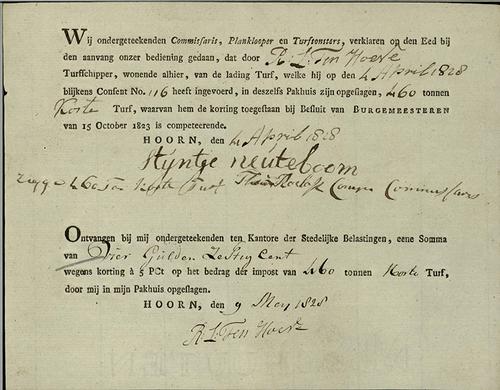 Wij ondergeteekenden Commissaris, Planklooper en Turftonsters, verklaren op den Eed bij
den aanvang onzer bediening gedaan, dat door R. L. Ten Hoeve
Turfschipper, wonende alhier, van de lading Turf, welke hij op den 4 April 1828
blijkens Consent No. 116 heeft ingevoerd, in deszelfs Pakhuis zijn opgeslagen, 460 tonnen
Korte Turf, waarvan hem de korting toegestaan bij Besluit van BURGEMEESTEREN
van 15 October 1823 is competeerende.
HOORN, den 4 April 1828
Stÿntje neuteboom
zegge 460 Ton Korte Turf Commissaris
Ontvangen bij mij ondergeteekenden ten Kantore der Stedelijke Belastingen, eene Somma
van Vier Gulden Zestig Cent
wegens korting à 5 PCt op het bedrag der impost van 460 tonnen Korte Turf,
door mij in mijn Pakhuis opgeslagen.
HOORN, den 9 May 1828
R. L. Ten Hoeve